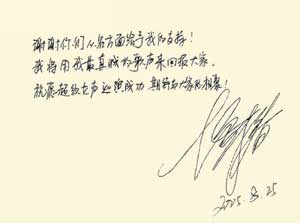 谢谢你们从各方面给予我的支持!
我将用我最真诚的歌声来回报大家。
祝愿超级女声巡演成功 期待与大家的相聚!
2005.8.25